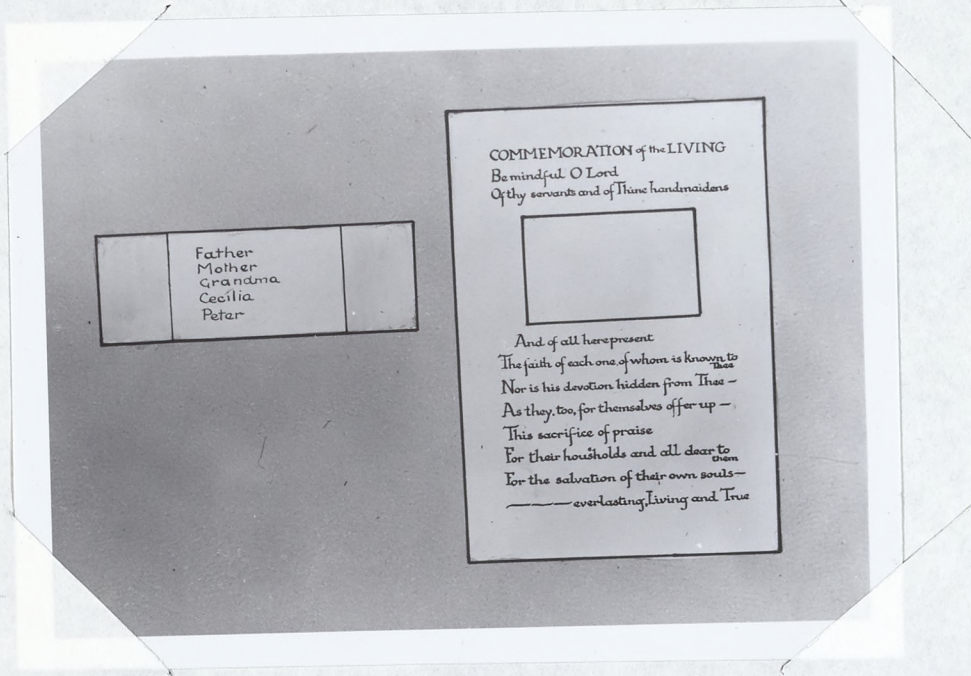 Father
Mother
Grandma
Cecilia
Peter
COMMEMORATION of the LIVING
Be mindful O Lord
Of thy servants and of Thine handmaidens
And of all here present
The faith of each one, of whom is known to Thee
Nor is his devotion hidden from Thee —
As they, too, for themselves offer up —
This sacrifice of praise
For their housholds and all dear to them
For the salvation of their own souls —
——— everlasting, Living and True